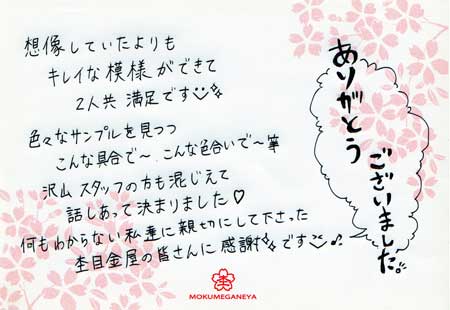 想像していたよりも
キレイな模様ができて
2人共 満足です
色々なサンプルを見つつ
こんな具合で〜 こんな色合いで〜等
沢山 スタッフの方も混じえて
話しあって決まりました♡
何もわからない私達に親切にして下さった
杢目金屋の皆さんに感謝です♪
ありがとう
ございました。
MOKUMEGANEYA